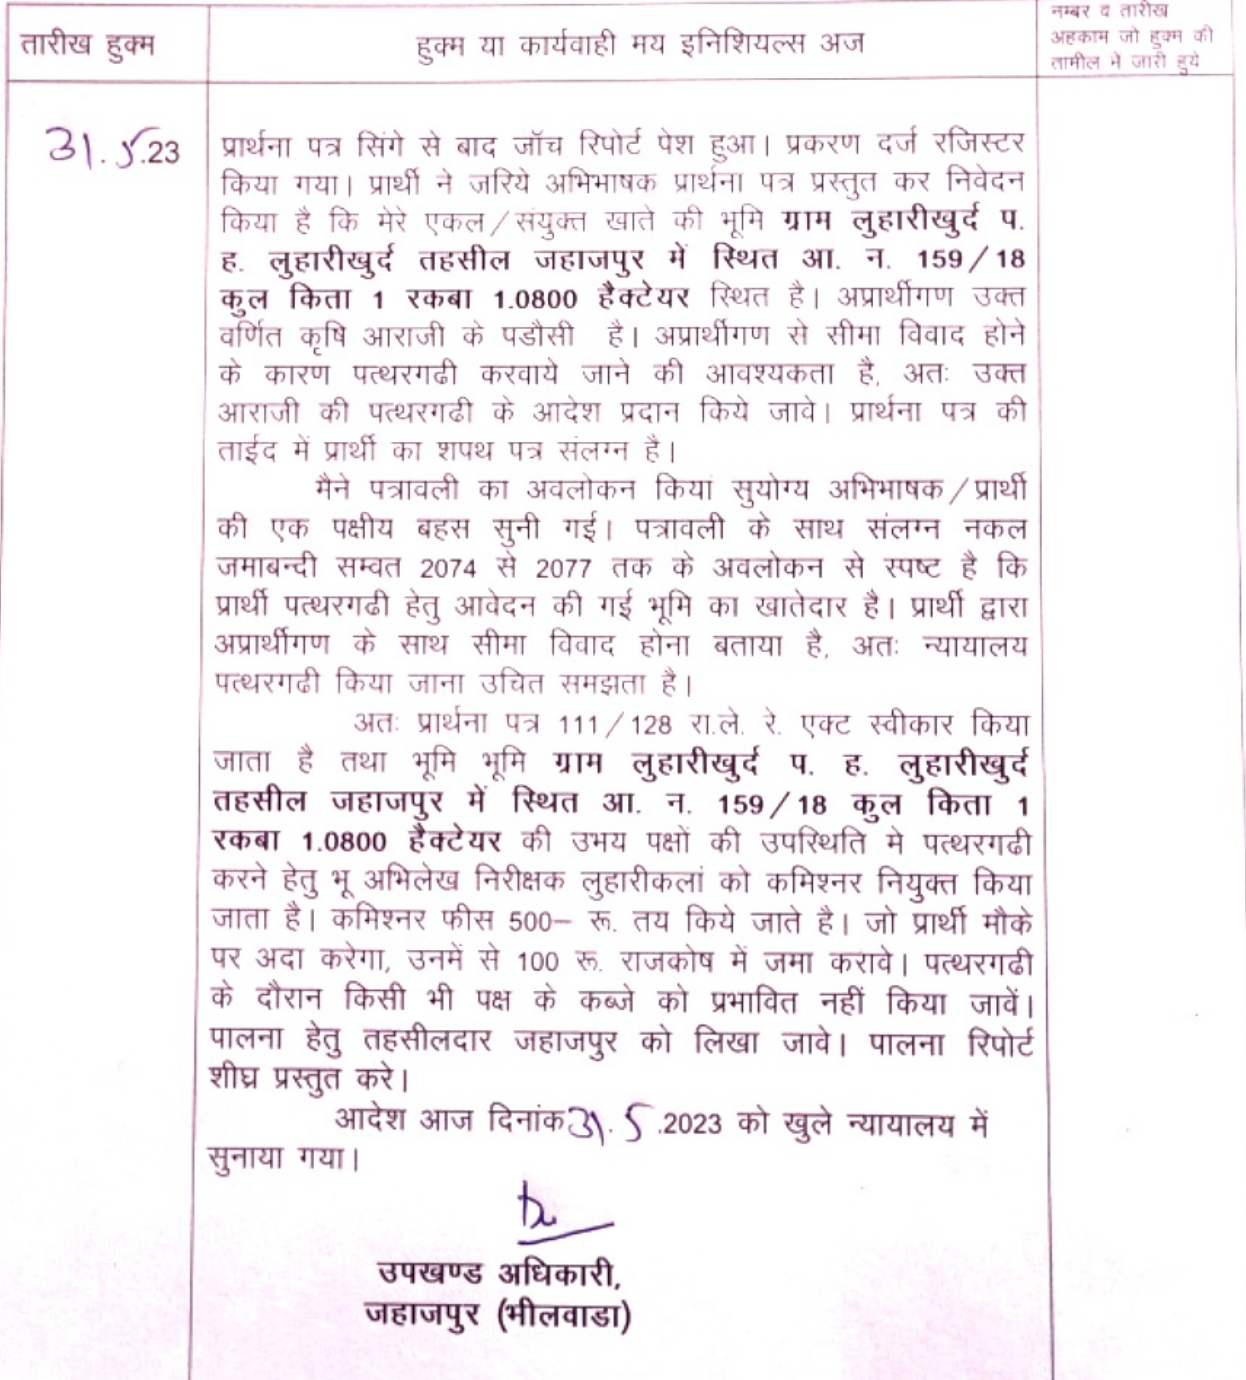 तारीख हुक्म
हुक्म या कार्यवाही मय इनिशियल्स अज
नम्बर व तारीख
अहकाम जो हुक्म की
तामील मे जारी हुये
31.5.23
प्रार्थना पत्र सिंगे से बाद जॉच रिपोर्ट पेश हुआ। प्रकरण दर्ज रजिस्टर
किया गया। प्रार्थी ने जरिये अभिभाषक प्रार्थना पत्र प्रस्तुत कर निवेदन
किया है कि मेरे एकल/संयुक्त खाते की भूमि ग्राम लुहारीखुर्द प.
ह. लुहारीखुर्द तहसील जहाजपुर में स्थित आ. न. 159/18
कुल किता 1 रकबा 1.0800 हैक्टेयर स्थित है। अप्रार्थीगण उक्त
वर्णित कृषि आराजी के पडौसी है। अप्रार्थीगण से सीमा विवाद होने
के कारण पत्थरगढी करवाये जाने की आवश्यकता है, अतः उक्त
आराजी की पत्थरगढी के आदेश प्रदान किये जावे। प्रार्थना पत्र की
ताईद में प्रार्थी का शपथ पत्र संलग्न है।
मैने पत्रावली का अवलोकन कियां सुयोग्य अभिभाषक/प्रार्थी
की एक पक्षीय बहस सुनी गई। पत्रावली के साथ संलग्न नकल
जमाबन्दी सम्वत 2074 से 2077 तक के अवलोकन से स्पष्ट है कि
प्रार्थी पत्थरगढी हेतु आवेदन की गई भूमि का खातेदार है। प्रार्थी द्वारा
अप्रार्थीगण के साथ सीमा विवाद होना बताया है, अतः न्यायालय
पत्थरगढी किया जाना उचित समझता है।
अतः प्रार्थना पत्र 111/128 रा.ले. रे. एक्ट स्वीकार किया
जाता है तथा भूमि भूमि ग्राम लुहारीखुर्द प. ह. लुहारीखुर्द
तहसील जहाजपुर में स्थित आ. न. 159/18 कुल किता 1
रकबा 1.0800 हैक्टेयर की उभय पक्षों की उपस्थिति मे पत्थरगढी
करने हेतु भू अभिलेख निरीक्षक लुहारीकलां को कमिश्नर नियुक्त किया
जाता है। कमिश्नर फीस 500– रू. तय किये जाते है। जो प्रार्थी मौके
पर अदा करेगा, उनमें से 100 रू. राजकोष में जमा करावे। पत्थरगढी
के दौरान किसी भी पक्ष के कब्जे को प्रभावित नहीं किया जावें।
पालना हेतु तहसीलदार जहाजपुर को लिखा जावे। पालना रिपोर्ट
शीघ्र प्रस्तुत करे।
आदेश आज दिनांक 31.5.2023 को खुले न्यायालय में
सुनाया गया।
उपखण्ड अधिकारी,
जहाजपुर (भीलवाडा)